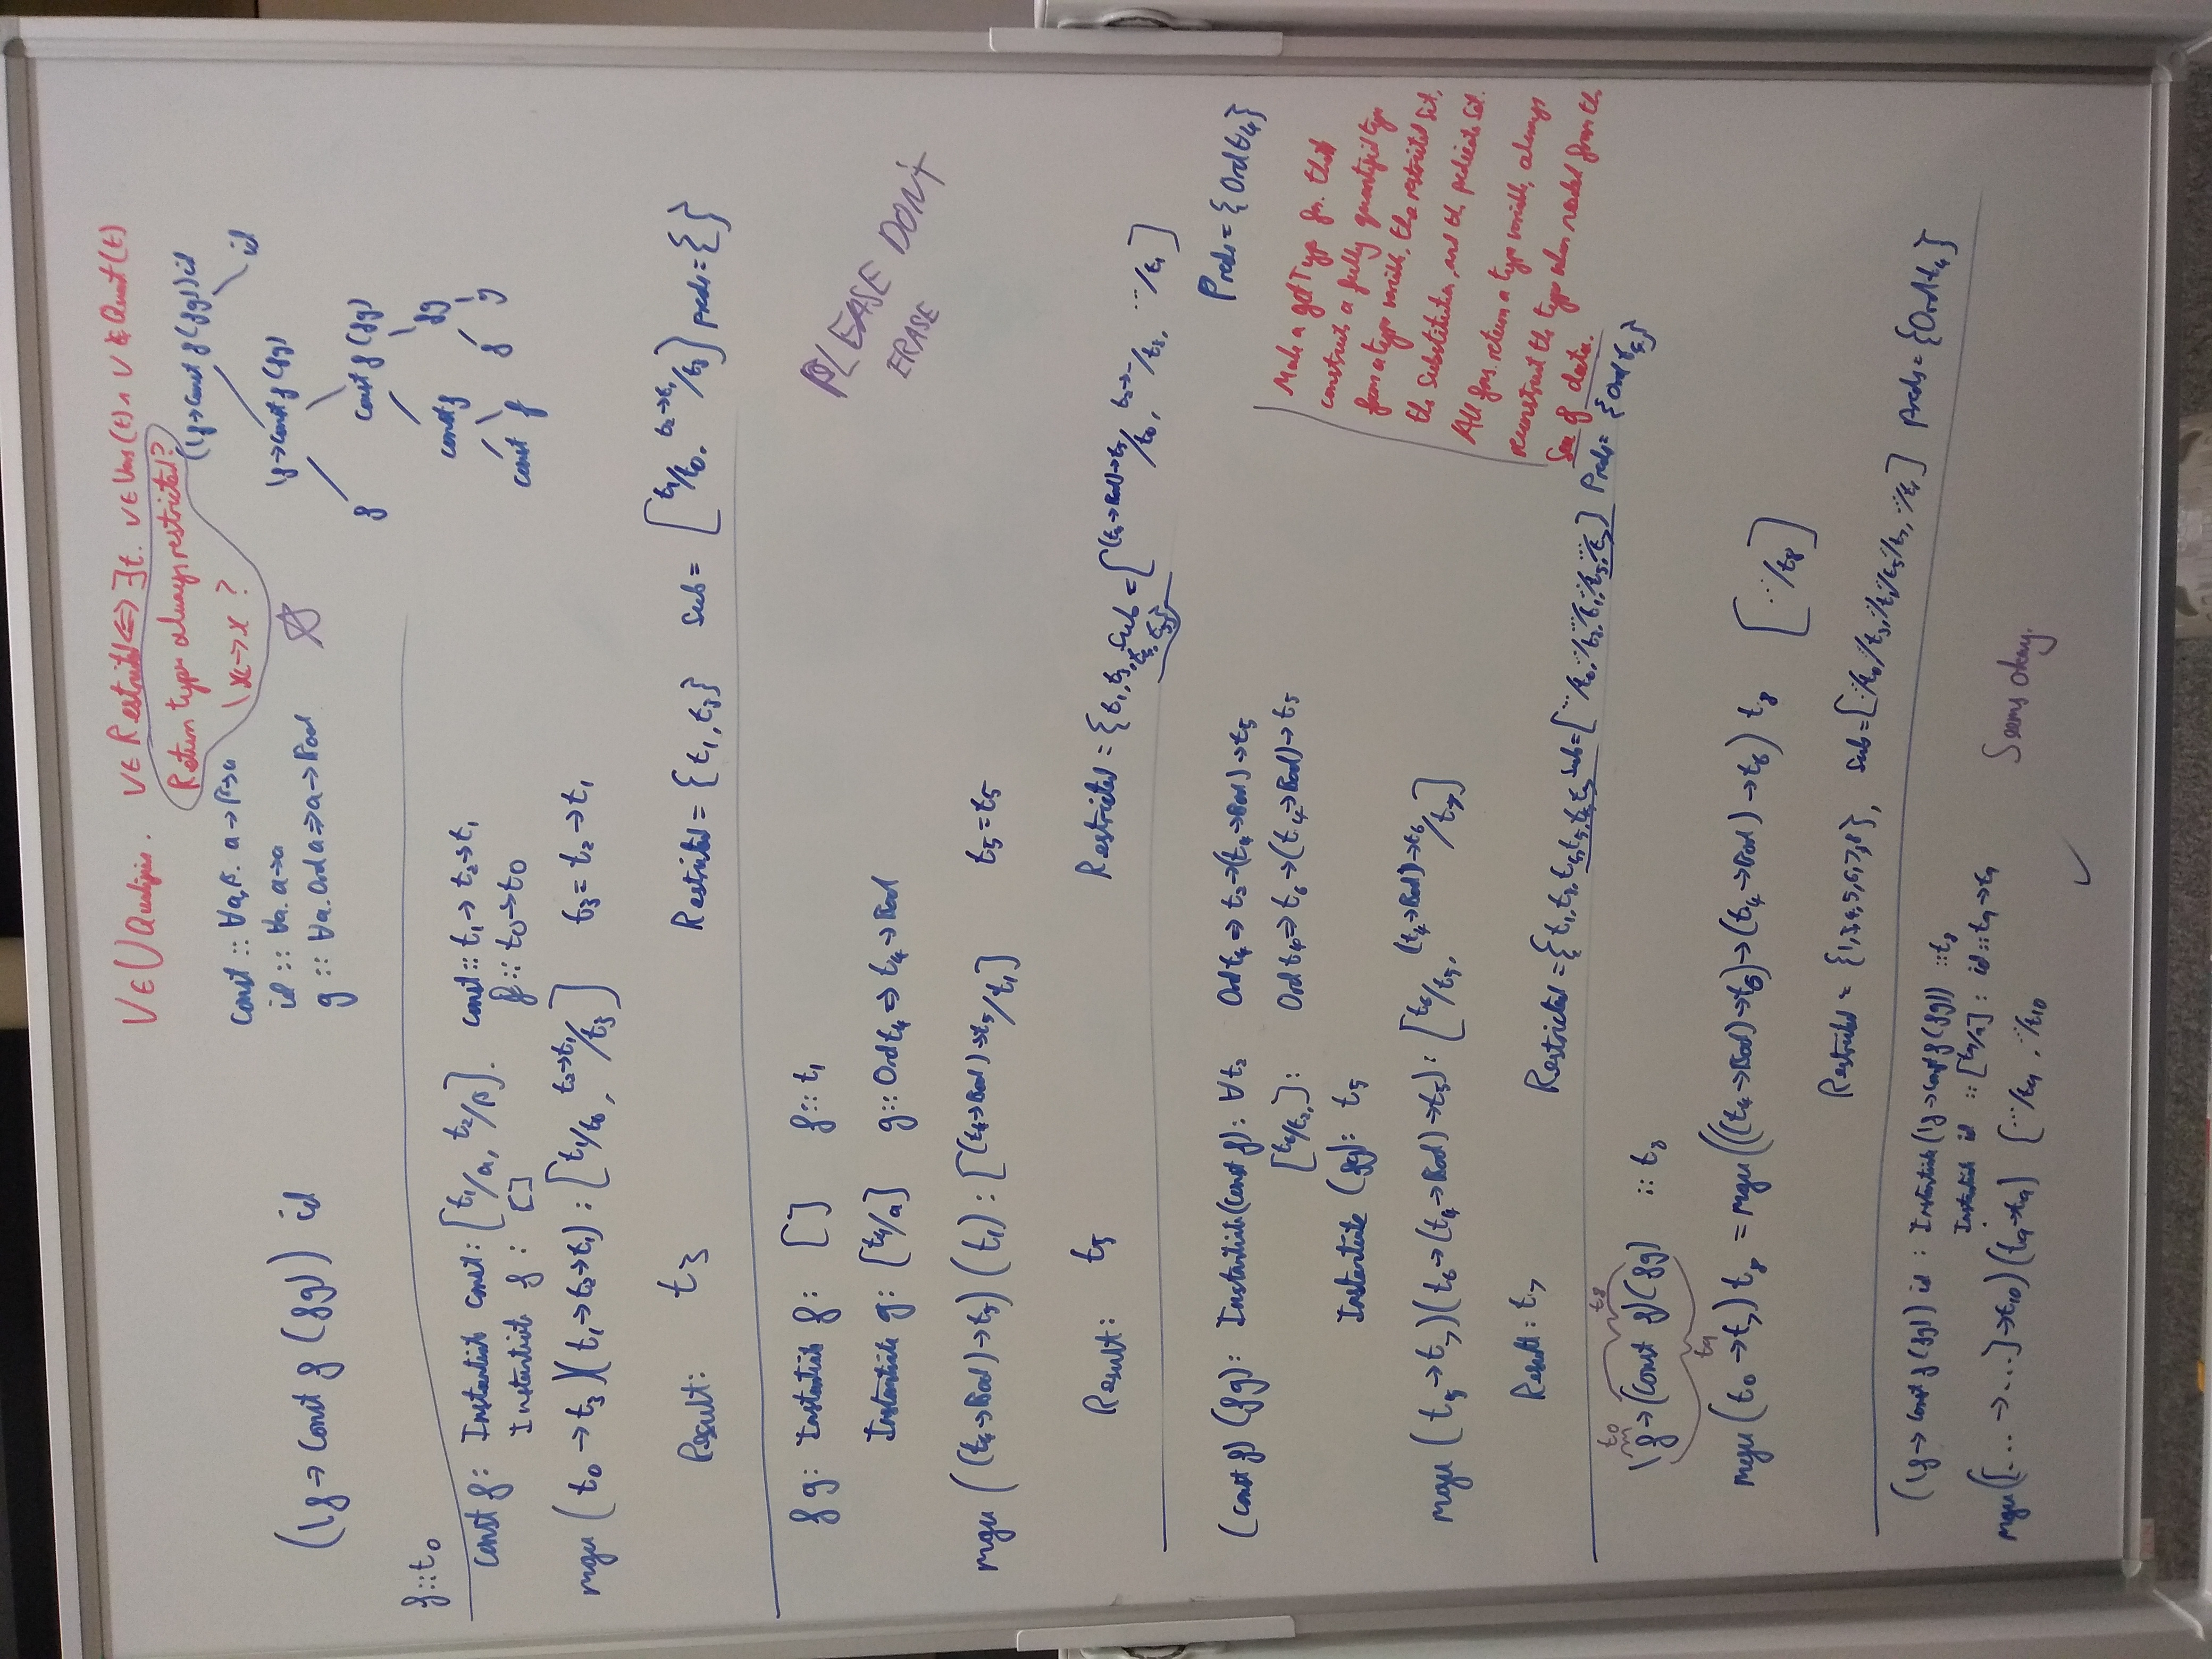 V∈⋃Quantifiers. V∈Restricted⇔∃t. V∈Vars(t)∧V∉Quant(t)
Return type always restricted?
\x→x ?
(\f→const f (fg)) id
const :: ∀a,β. a→β→a
id :: ∀a. a→a
g :: ∀a. Ord a⇒a→Bool
(\f→const f (fg)) id
\f→const f (fg)
id
f
const f (fg)
const f
fg
const f
f g
f::t₀
const f: Instantiate const: [t₁/a, t₂/β]. const:: t₁→t₂→t₁
Instantiate f : [] f:: t₀→t₀
mgu (t₀→t₃)(t₁→t₂→t₁): [t₁/t₀, t₂→t₁/t₃] t₃=t₂→t₁
Result: t₃ Restricted = {t₁,t₃} Sub = [t₁/t₀, t₂→t₁/t₃] preds={}
f g: Instantiate f: [] f:: t₁
Instantiate g: [t₄/a] g:: Ord t₄⇒t₄→Bool
PLEASE DON'T
ERASE
mgu ((t₄→Bool)→t₅) (t₁) : [(t₄→Bool)→t₅/t₁] t₅=t₅
Result: t₅ Restricted = {t₁,t₃,t₄,t₅} Sub=[(t₄→Bool)→t₅/t₀, t₂→-/t₃, .../t₁]
Preds = {Ord t₄}
(const f) (fg): Instantiate (const f): ∀t₂ Ord t₄⇒t₂→(t₄→Bool)→t₅
[t₆/t₂]: Ord t₄⇒t₆→(t₄→Bool)→t₅
Instantiate (fg): t₅
mgu (t₅→t₇)(t₆→(t₄→Bool)→t₅): [t₆/t₅, (t₄→Bool)→t₆/t₇]
Result: t₇ Restricted={t₁,t₃,t₄,t₅,t₆,t₇ Sub=[.../t₀, .../t₃, .../t₁, .../t₅, .../t₇] Preds={Ord t₄}
Make a getType fn. that
constructs a fully quantified type
from a type variable, the restricted set,
the substitution, and the predicate set.
All fns. return a type variable, always
reconstruct the type when needed from the
sea of data.
t₀ t₈
\f→(const f)(fg) :: t₈
t₉
mgu (t₀→t₇) t₈ = mgu(((t₄→Bool)→t₆)→(t₄→Bool)→t₆) t₈ [.../t₈]
Restricted = {1,3,4,5,6,7,8}, Sub=[.../t₀ .../t₃, .../t₁ .../t₅ .../t₇, .../t₁] preds={Ord t₄}
(\f→const f (fg)) id : Instantiate (\f→const f (fg)) ::t₈
Instantiate id :: [t₉/a] : id::t₉→t₉
mgu([...→...]→t₁₀)(t₉→t₉) [.../t₉, .../t₁₀
Seems okay.
✓